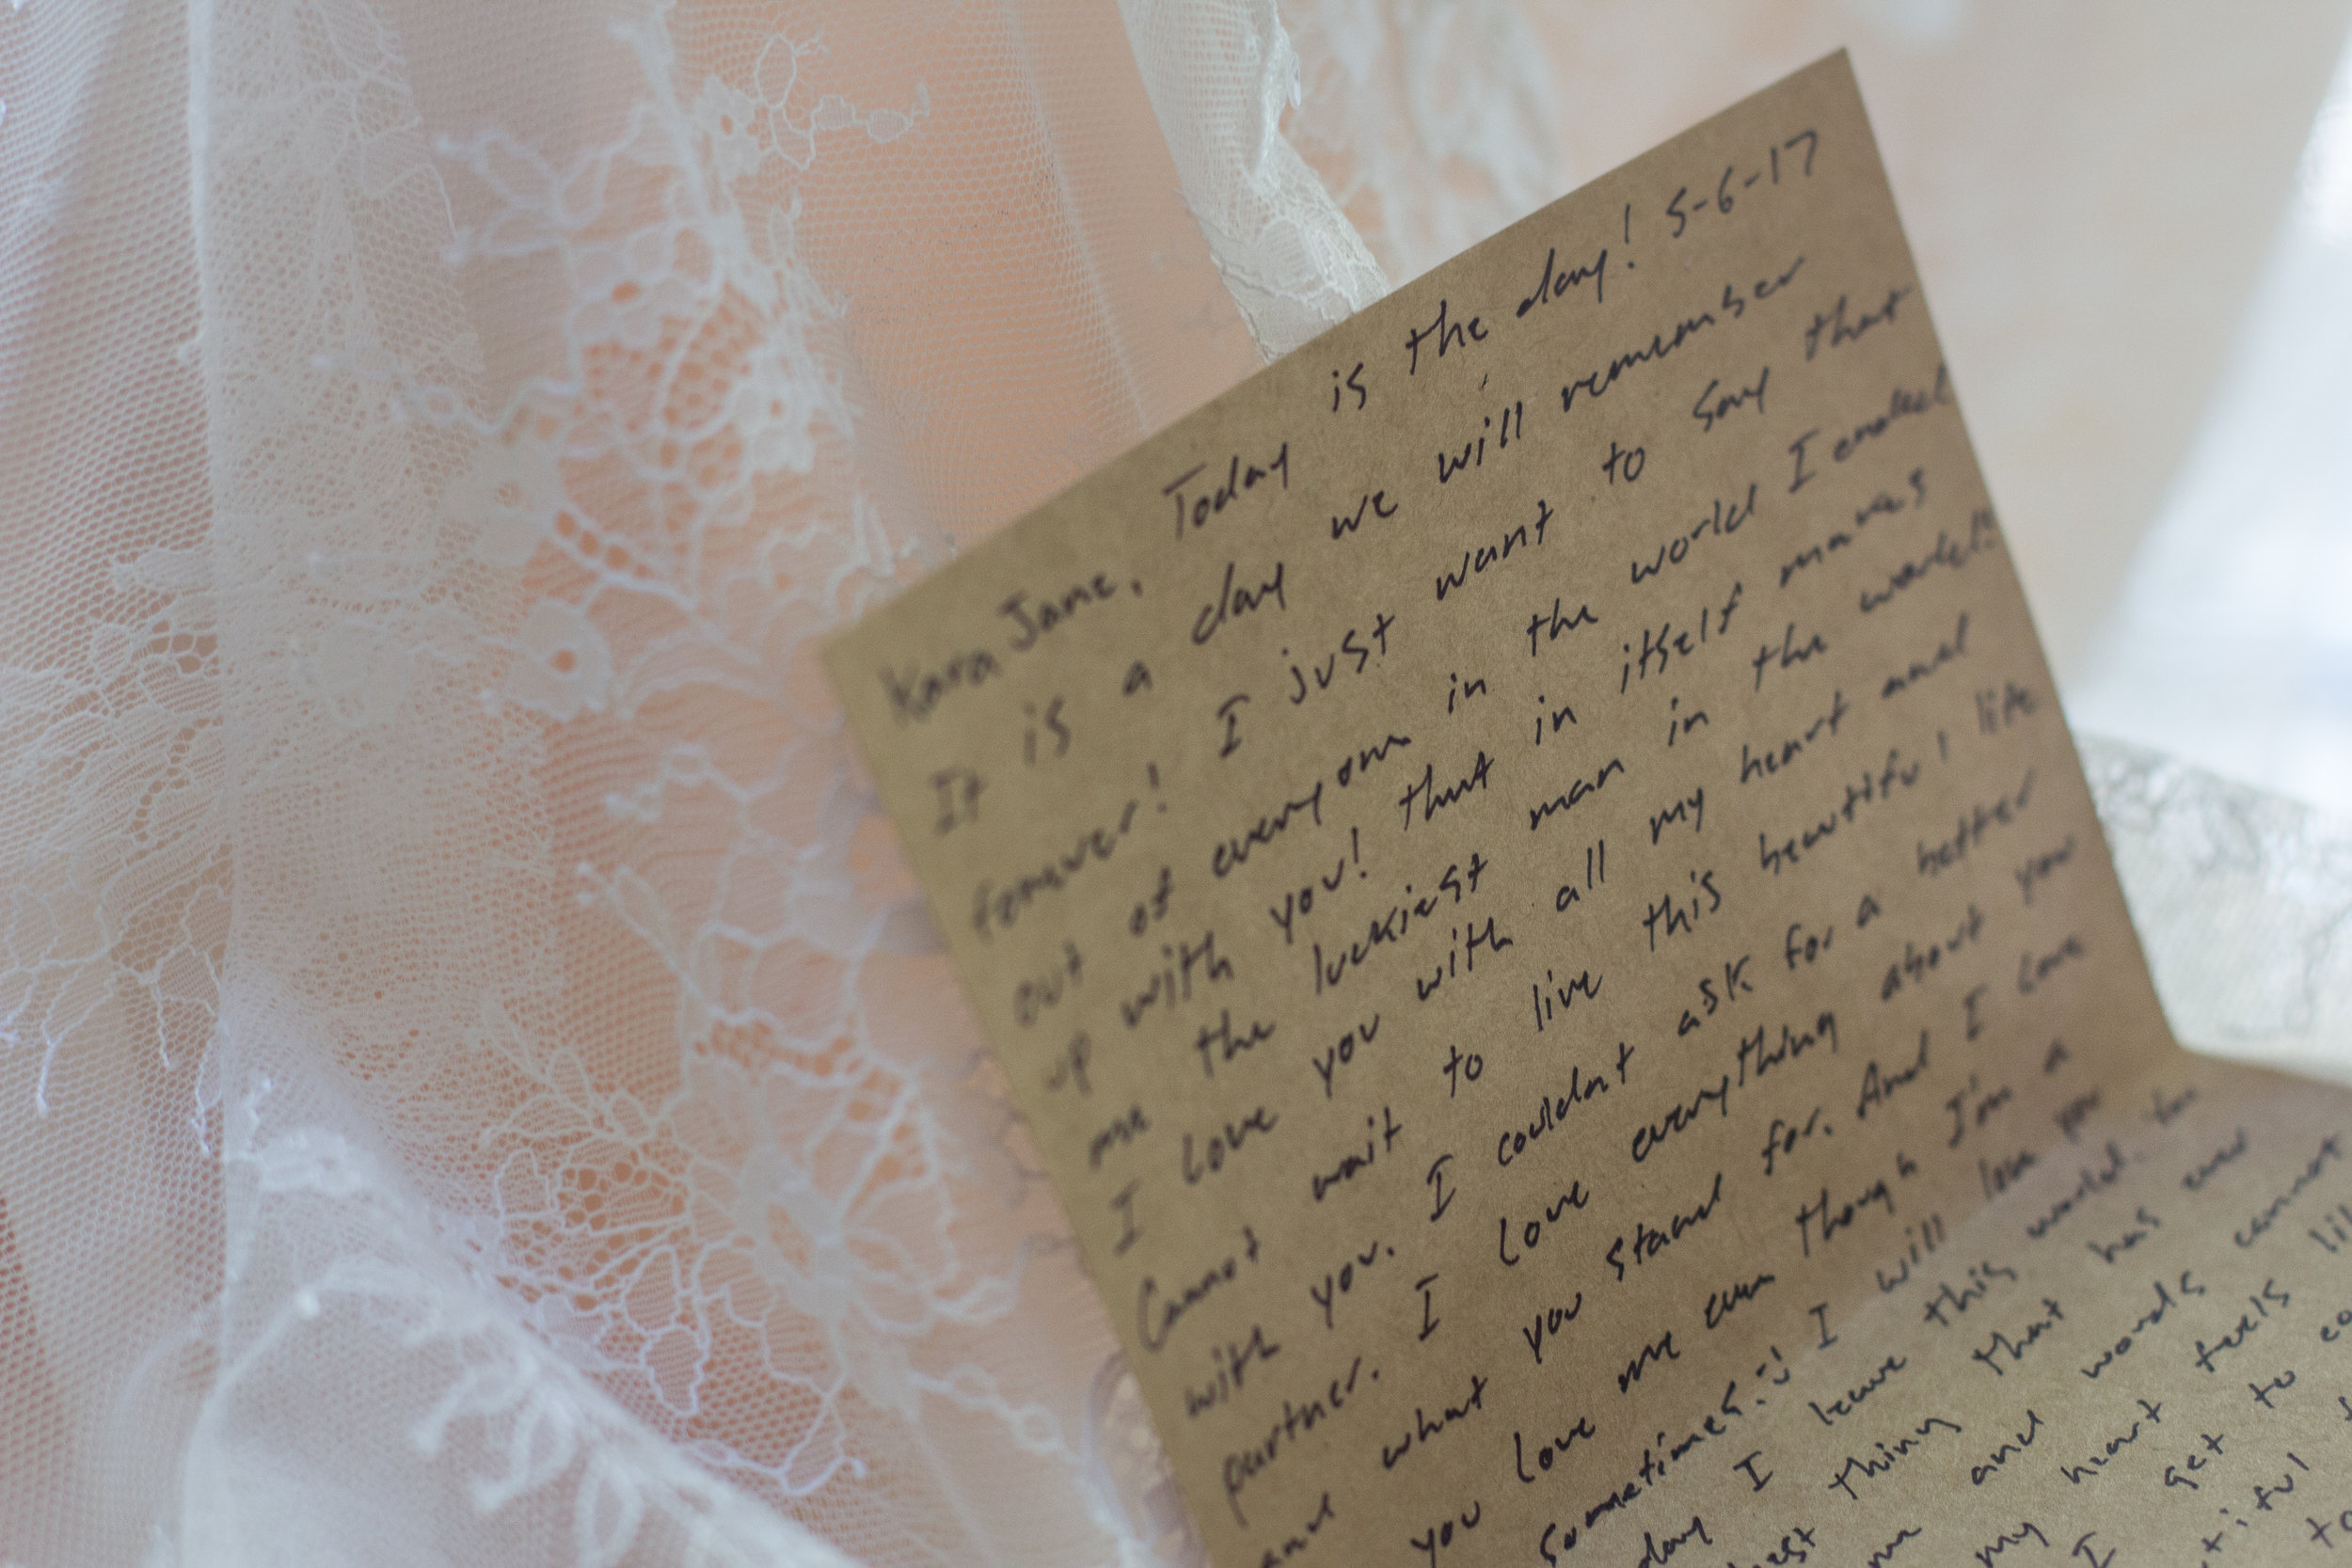 Kara Jane, Today is the day! 5-6-17
It is a day we will remember
forever! I just want to say that
out of everyone in the world I ended
up with you! that in itself makes
me the luckiest man in the world!!
I love you with all my heart and
Cannot wait to live this beautiful life
with you. I couldnt ask for a better
partner. I love everything about you
and what you stand for. And I love
you love me even though I'm a
sometimes :) I will love you
day I leave this world.
thing that has ever
and words cannot
my heart feels
I get to